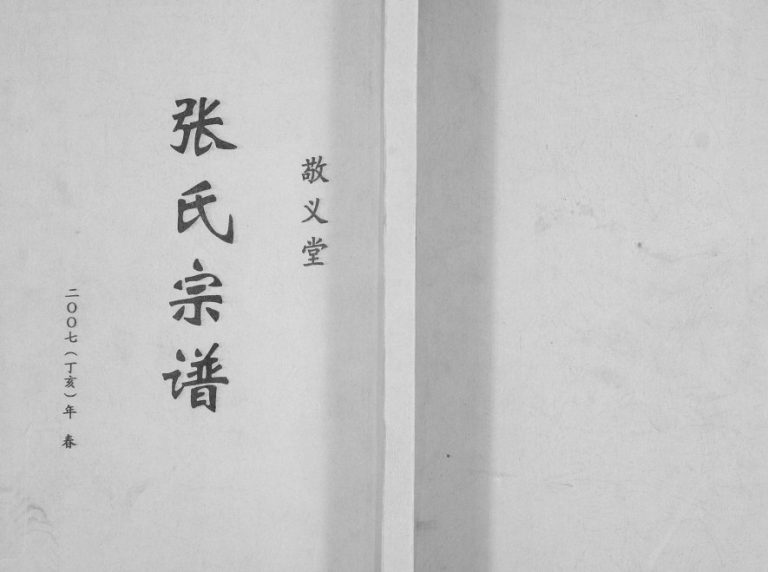 敬义堂
张氏宗谱
二〇〇七(丁亥)年 春